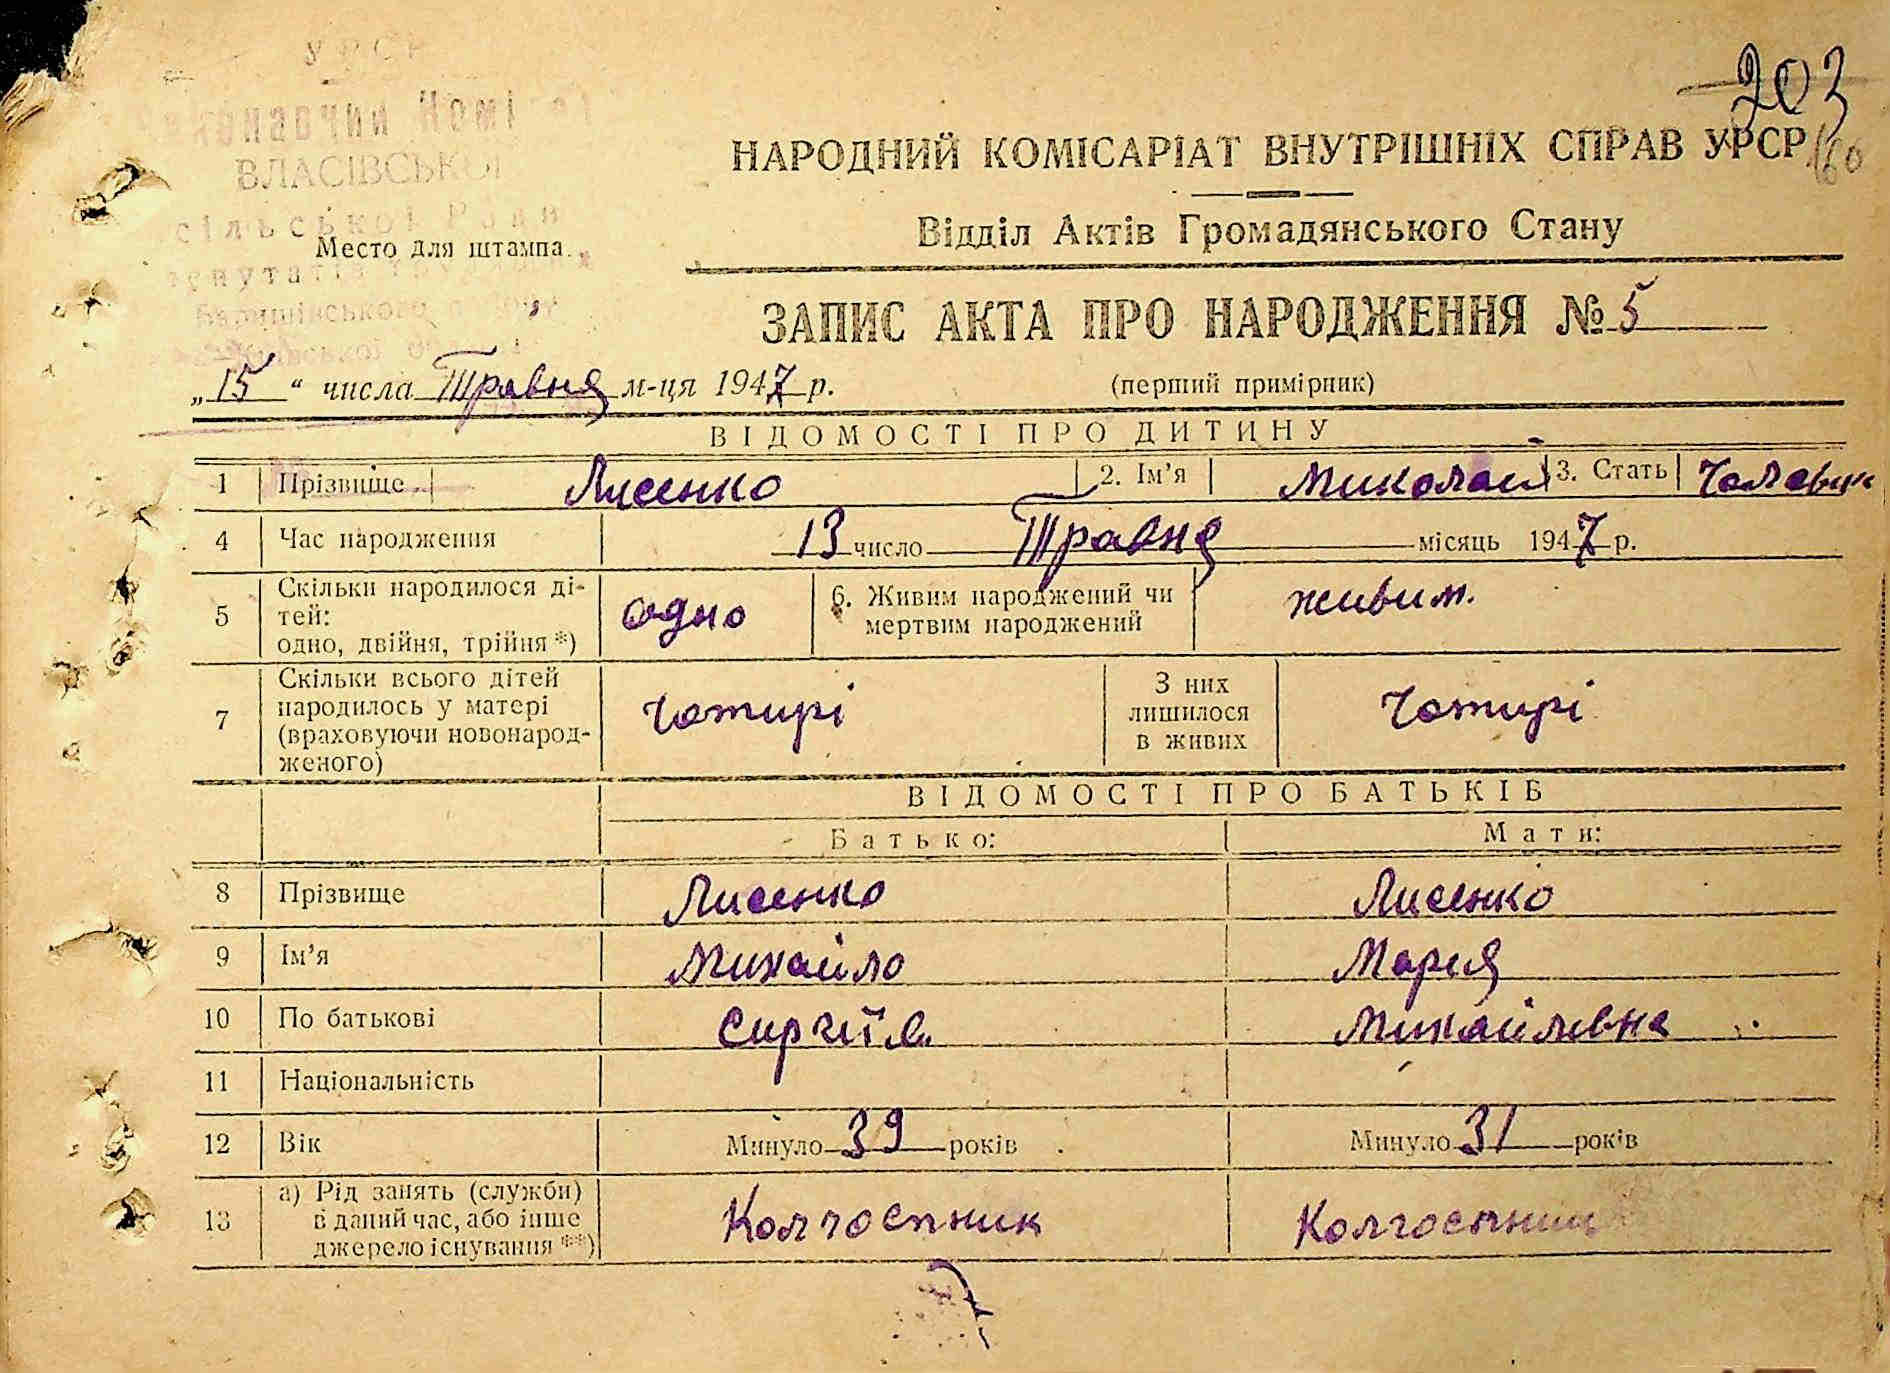 УРСР
ВЛАСІВСЬКОЇ
сільської Ради
Место для штампа.
203
160
НАРОДНИЙ КОМІСАРІАТ ВНУТРІШНІХ СПРАВ УРСР
Відділ Актів Громадянського Стану
ЗАПИС АКТА ПРО НАРОДЖЕННЯ № 5
„15“ числа Травня м-ця 1947 р. (перший примірник)
ВІДОМОСТІ ПРО ДИТИНУ
1 Прізвище Лисенко 2. Ім'я Миколай 3. Стать
4 Час народження 13 число Травня місяць 1947 р.
5 Скільки народилося ді-
тей:
одно, двійня, трійня *) одно 6. Живим народжений чи
мертвим народжений живим.
7 Скільки всього дітей
народилось у матері
(враховуючи новонарод-
женого) чотирі З них
лишилося
в живих чотирі
ВІДОМОСТІ ПРО БАТЬКІВ
Батько: Мати:
8 Прізвище Лисенко Лисенко
9 Ім'я Михайло Мария
10 По батькові Сиргїїв. Михайлевна
11 Національність
12 Вік Минуло 39 років Минуло 31 років
13 а) Рід занять (служби)
в даний час, або інше
джерело існування **) Колгоспник Колгоспник